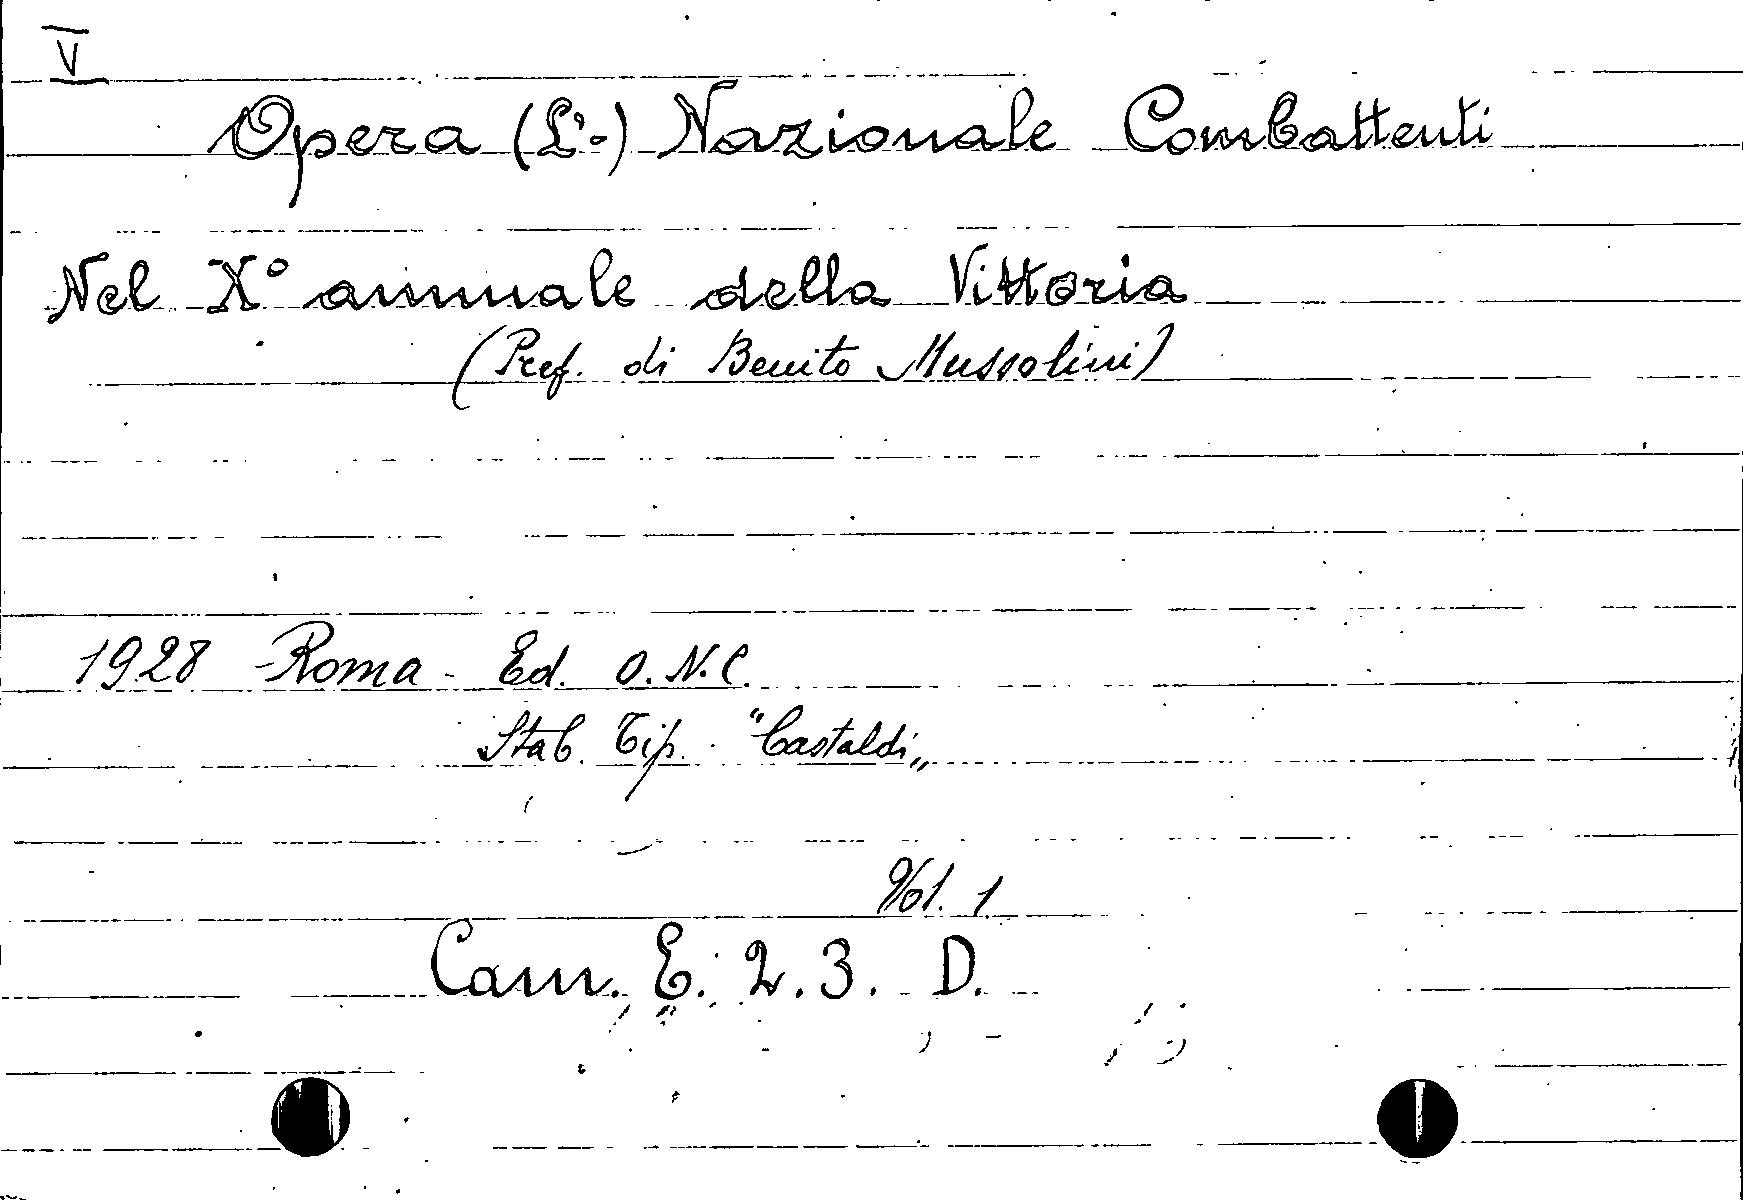 V
Opera (L'-) Nazionale Combattenti
Nel X° annuale della Vittoria
(Pref. di Benito Mussolini)
1928 - Roma - Ed. O.N.C.
Stab. Tip. "Castaldi„
Vol. 1
Cam. E. 2. 3. D.